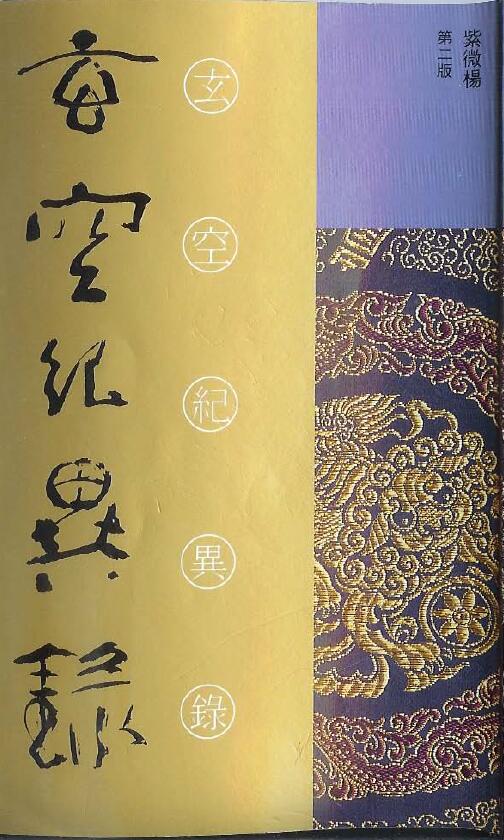 紫微楊
第二版
玄空紀異錄
玄空紀異錄